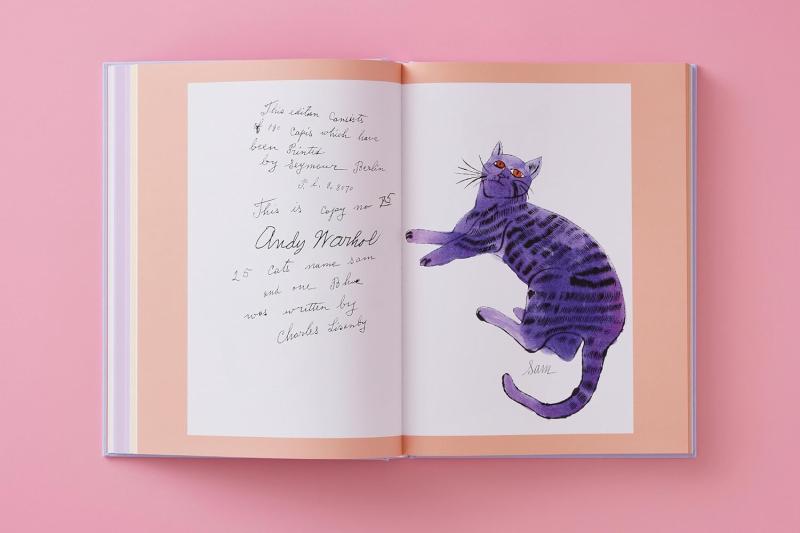 This edition consists
of 190 Copis which have
been Printed
by Seymour Berlin
P. L. 8, 8070
This is copy no 75
Andy Warhol
25 Cats name sam
and one Blue
was written by
Charles Lisanby
Sam